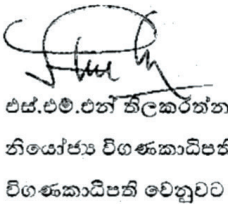 එස්.එම්.එන් තිලකරත්න
නියෝජ්‍ය විගණකාධිපති
විගණකාධිපති වෙනුවට